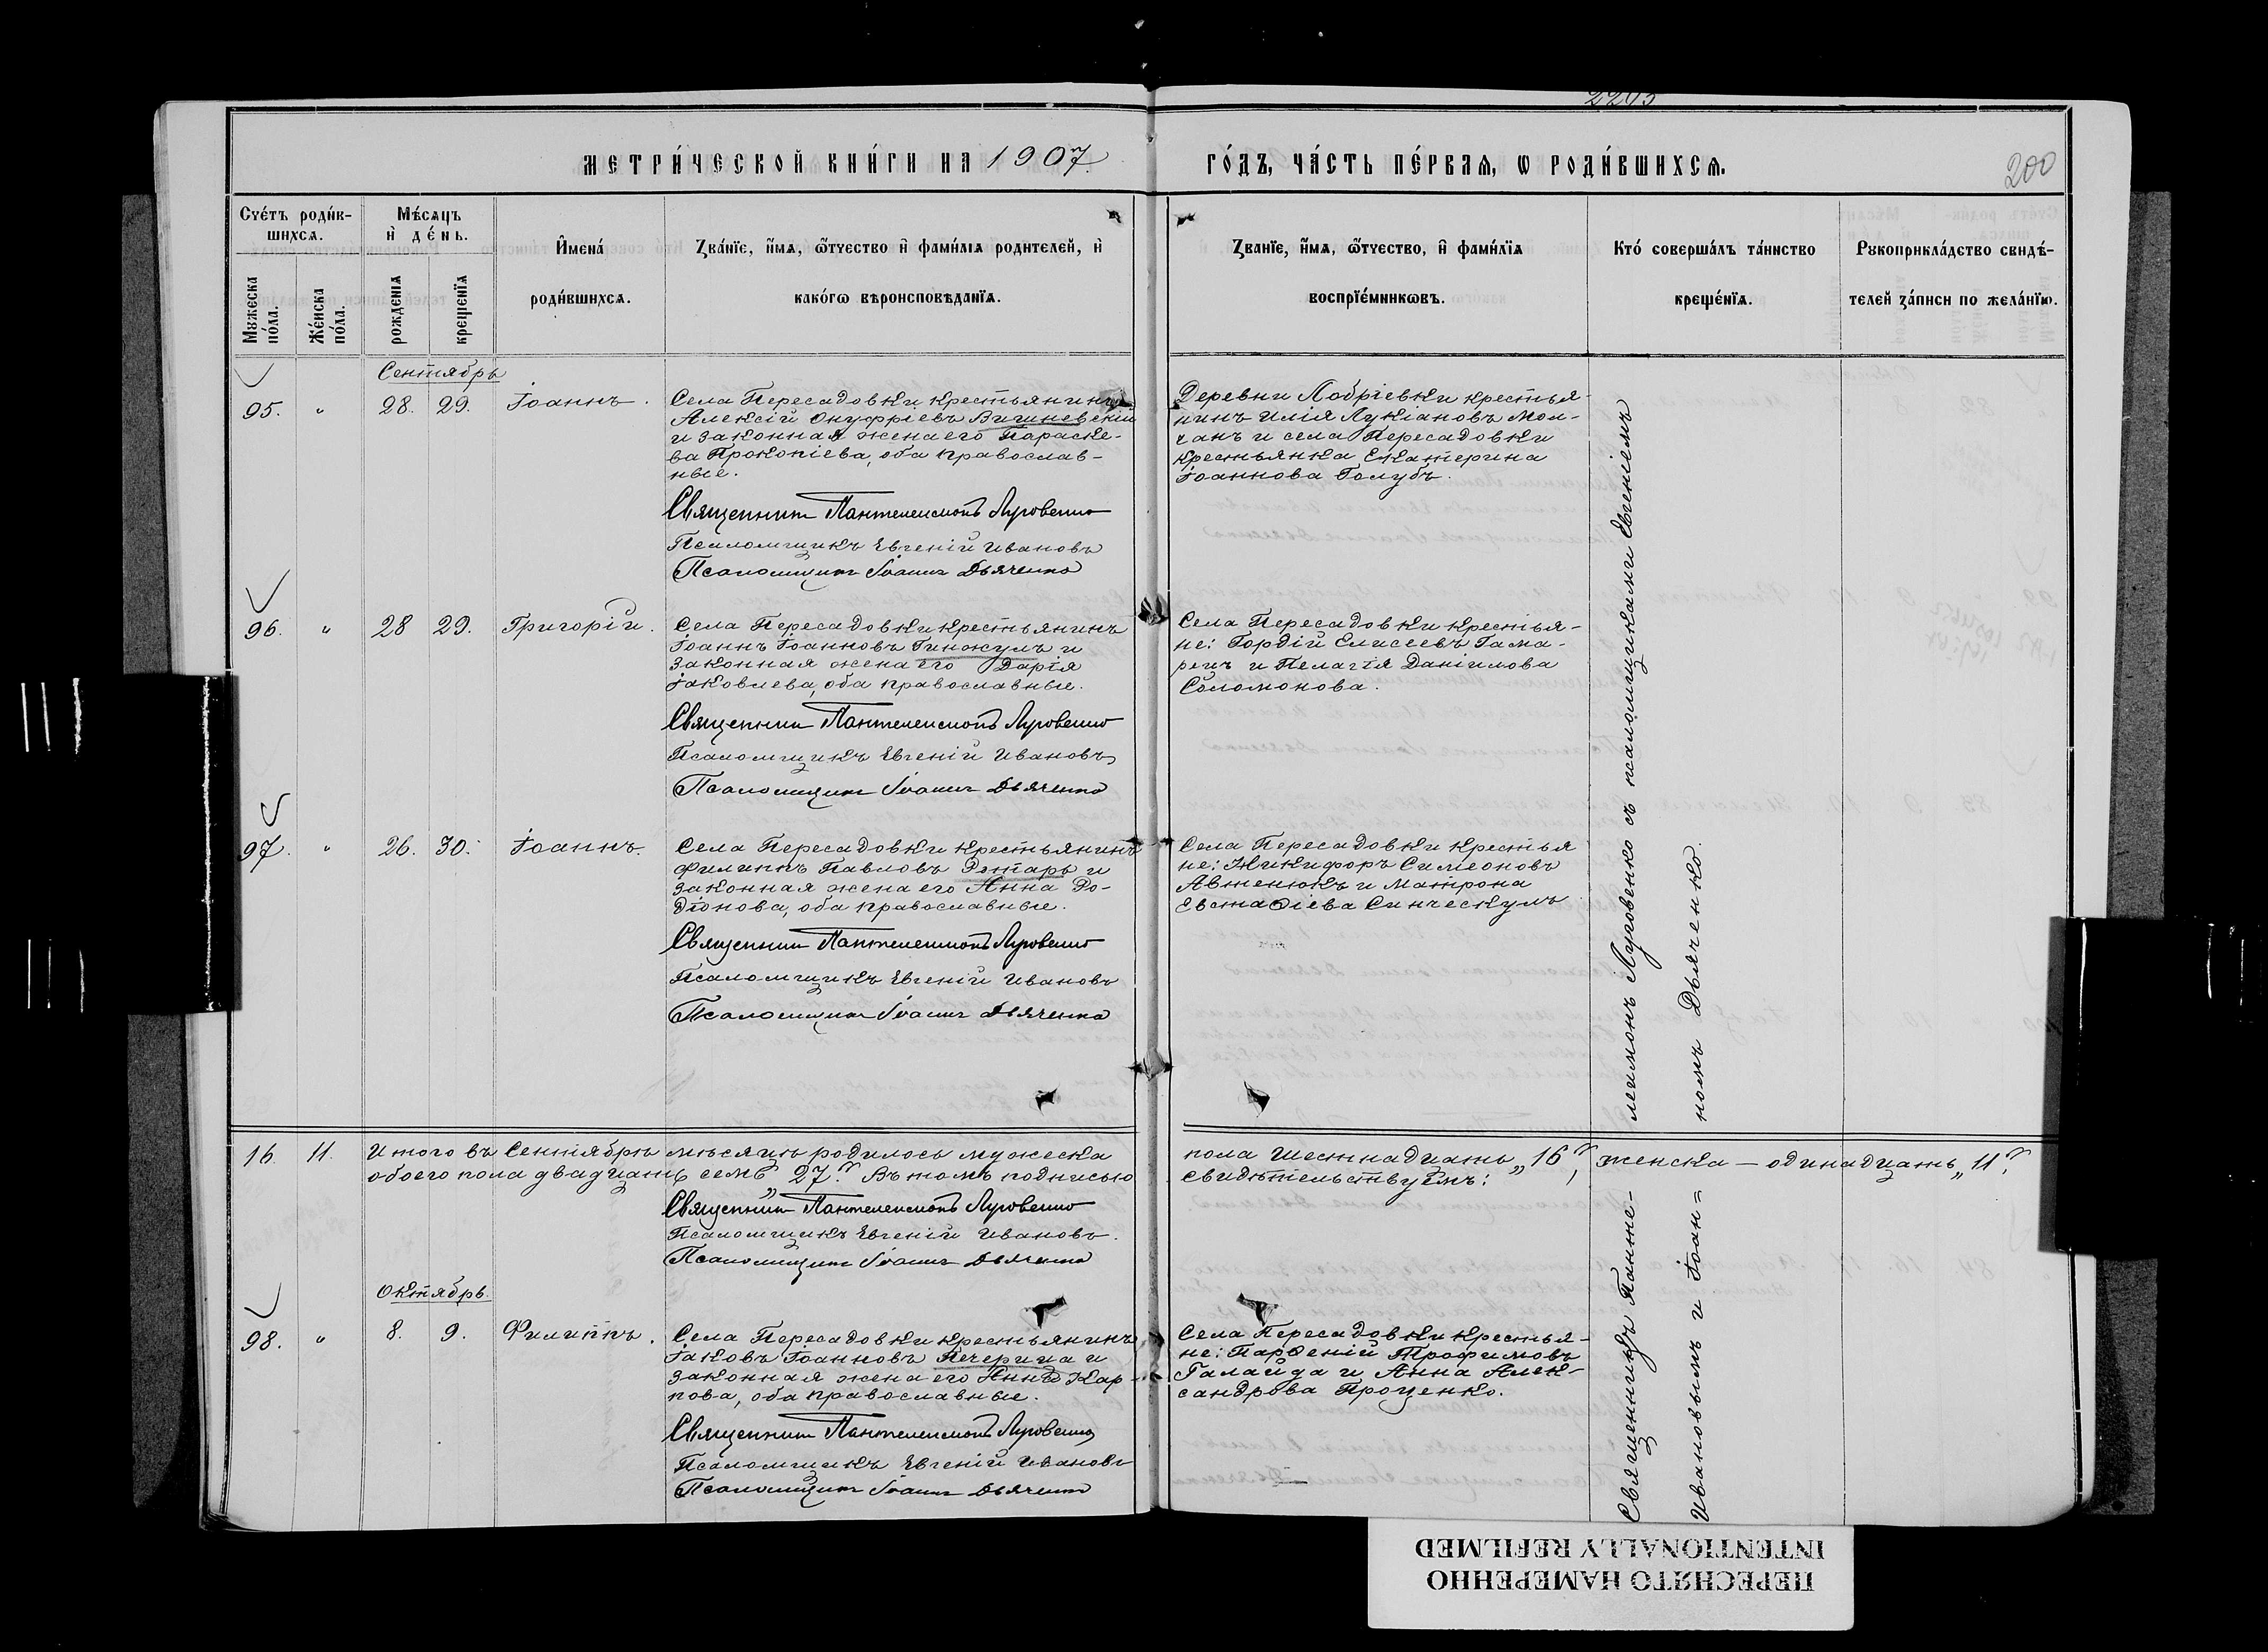 2203
МЕТРИ́ЧЕСКОЙ КНИ́ГИ НА 1907 ГО́ДЪ, ЧА́СТЬ ПЕ́РВАѦ, Ѡ РОДИ́ВШИХСѦ.
200
Счéтъ роди́в-
шихсѧ.
Мꙋжеска
по́ла.
Же́нска
по́ла.
Мѣ́сѧцъ
и҆ де́нь.
рожденїѧ
крещенїѧ
И҆мена́
роди́вшихсѧ.
Зва́нїе, и҆́мѧ, ѻ҆́тчество и҆ фами́лїѧ родителей, и҆
како́гѡ вѣроисповѣданїѧ.
Зва́нїе, и҆́мѧ, ѻ҆́тчество, и҆ фами́лїѧ
воспрїе́мникѡвъ.
Кто́ соверша́лъ та́инство
креще́нїѧ.
Рꙋкоприкла́дство свидѣ́-
телей за́писи по жела́нїю.
Сентябрь
95. " 28. 29. Іоаннъ.
Села Пересадовки крестьянинъ
Алексій Онуфріевъ Вишневскій
и законная жена его Параске-
ва Прокопіева, оба православ-
ные.
Священникъ Пантелеимонъ Луговенко
Псаломщикъ Евгеній Ивановъ
Псаломщикъ Іоаннъ Дьяченко
Деревни Лобріевки крестья-
нинъ Илія Лукіановъ Мол-
чанъ и села Пересадовки
крестьянка Екатерина
Іоаннова Голубъ.
96. " 28 29. Григорій.
Села Пересадовки крестьянинъ
Іоаннъ Іоанновъ Гинжулъ и
законная жена его Дарія
Іаковлева, оба православные.
Священникъ Пантелеимонъ Луговенко
Псаломщикъ Евгеній Ивановъ
Псаломщикъ Іоаннъ Дьяченко
Села Пересадовки крестья-
не: Гордій Елисеевъ Гама-
рецъ и Пелагія Даніилова
Соломонова.
97. " 26. 30. Іоаннъ.
Села Пересадовки крестьянинъ
Филиппъ Павловъ Ротарь и
законная жена его Анна Ро-
діонова, оба православные.
Священникъ Пантелеимонъ Луговенко
Псаломщикъ Евгеній Ивановъ
Псаломщикъ Іоаннъ Дьяченко
Села Пересадовки крестья
не: Никифоръ Симеоновъ
Автенюкъ и Матрона
Евстаѳіева Синческулъ
16. 11. Итого въ Сентябрѣ мѣсяцѣ родилось мужеска пола шестнадцать „16", женска — одинадцать „11",
обоего пола двадцать семь „27". Въ томъ подписью свидѣтельствуемъ:
Священникъ Пантелеимонъ Луговенко
Псаломщикъ Евгеній Ивановъ.
Псаломщикъ Іоаннъ Дьяченко
Октябрь.
98. " 8. 9. Филиппъ.
Села Пересадовки крестьянинъ
Іаковъ Іоанновъ Печерица и
законная жена его Анна Кар-
пова, оба православные.
Священникъ Пантелеимонъ Луговенко
Псаломщикъ Евгеній Ивановъ
Псаломщикъ Іоаннъ Дьяченко
Села Пересадовки крестья-
не: Парѳеній Трофимовъ
Галайда и Анна Алек-
сандрова Проценко.
Священникъ Панте-
леимонъ Луговенко съ псаломщиками Евгеніемъ
Ивановымъ и Іоан=
номъ Дьяченко.
ПЕРЕСНЯТО НАМЕРЕННО
INTENTIONALLY REFILMED